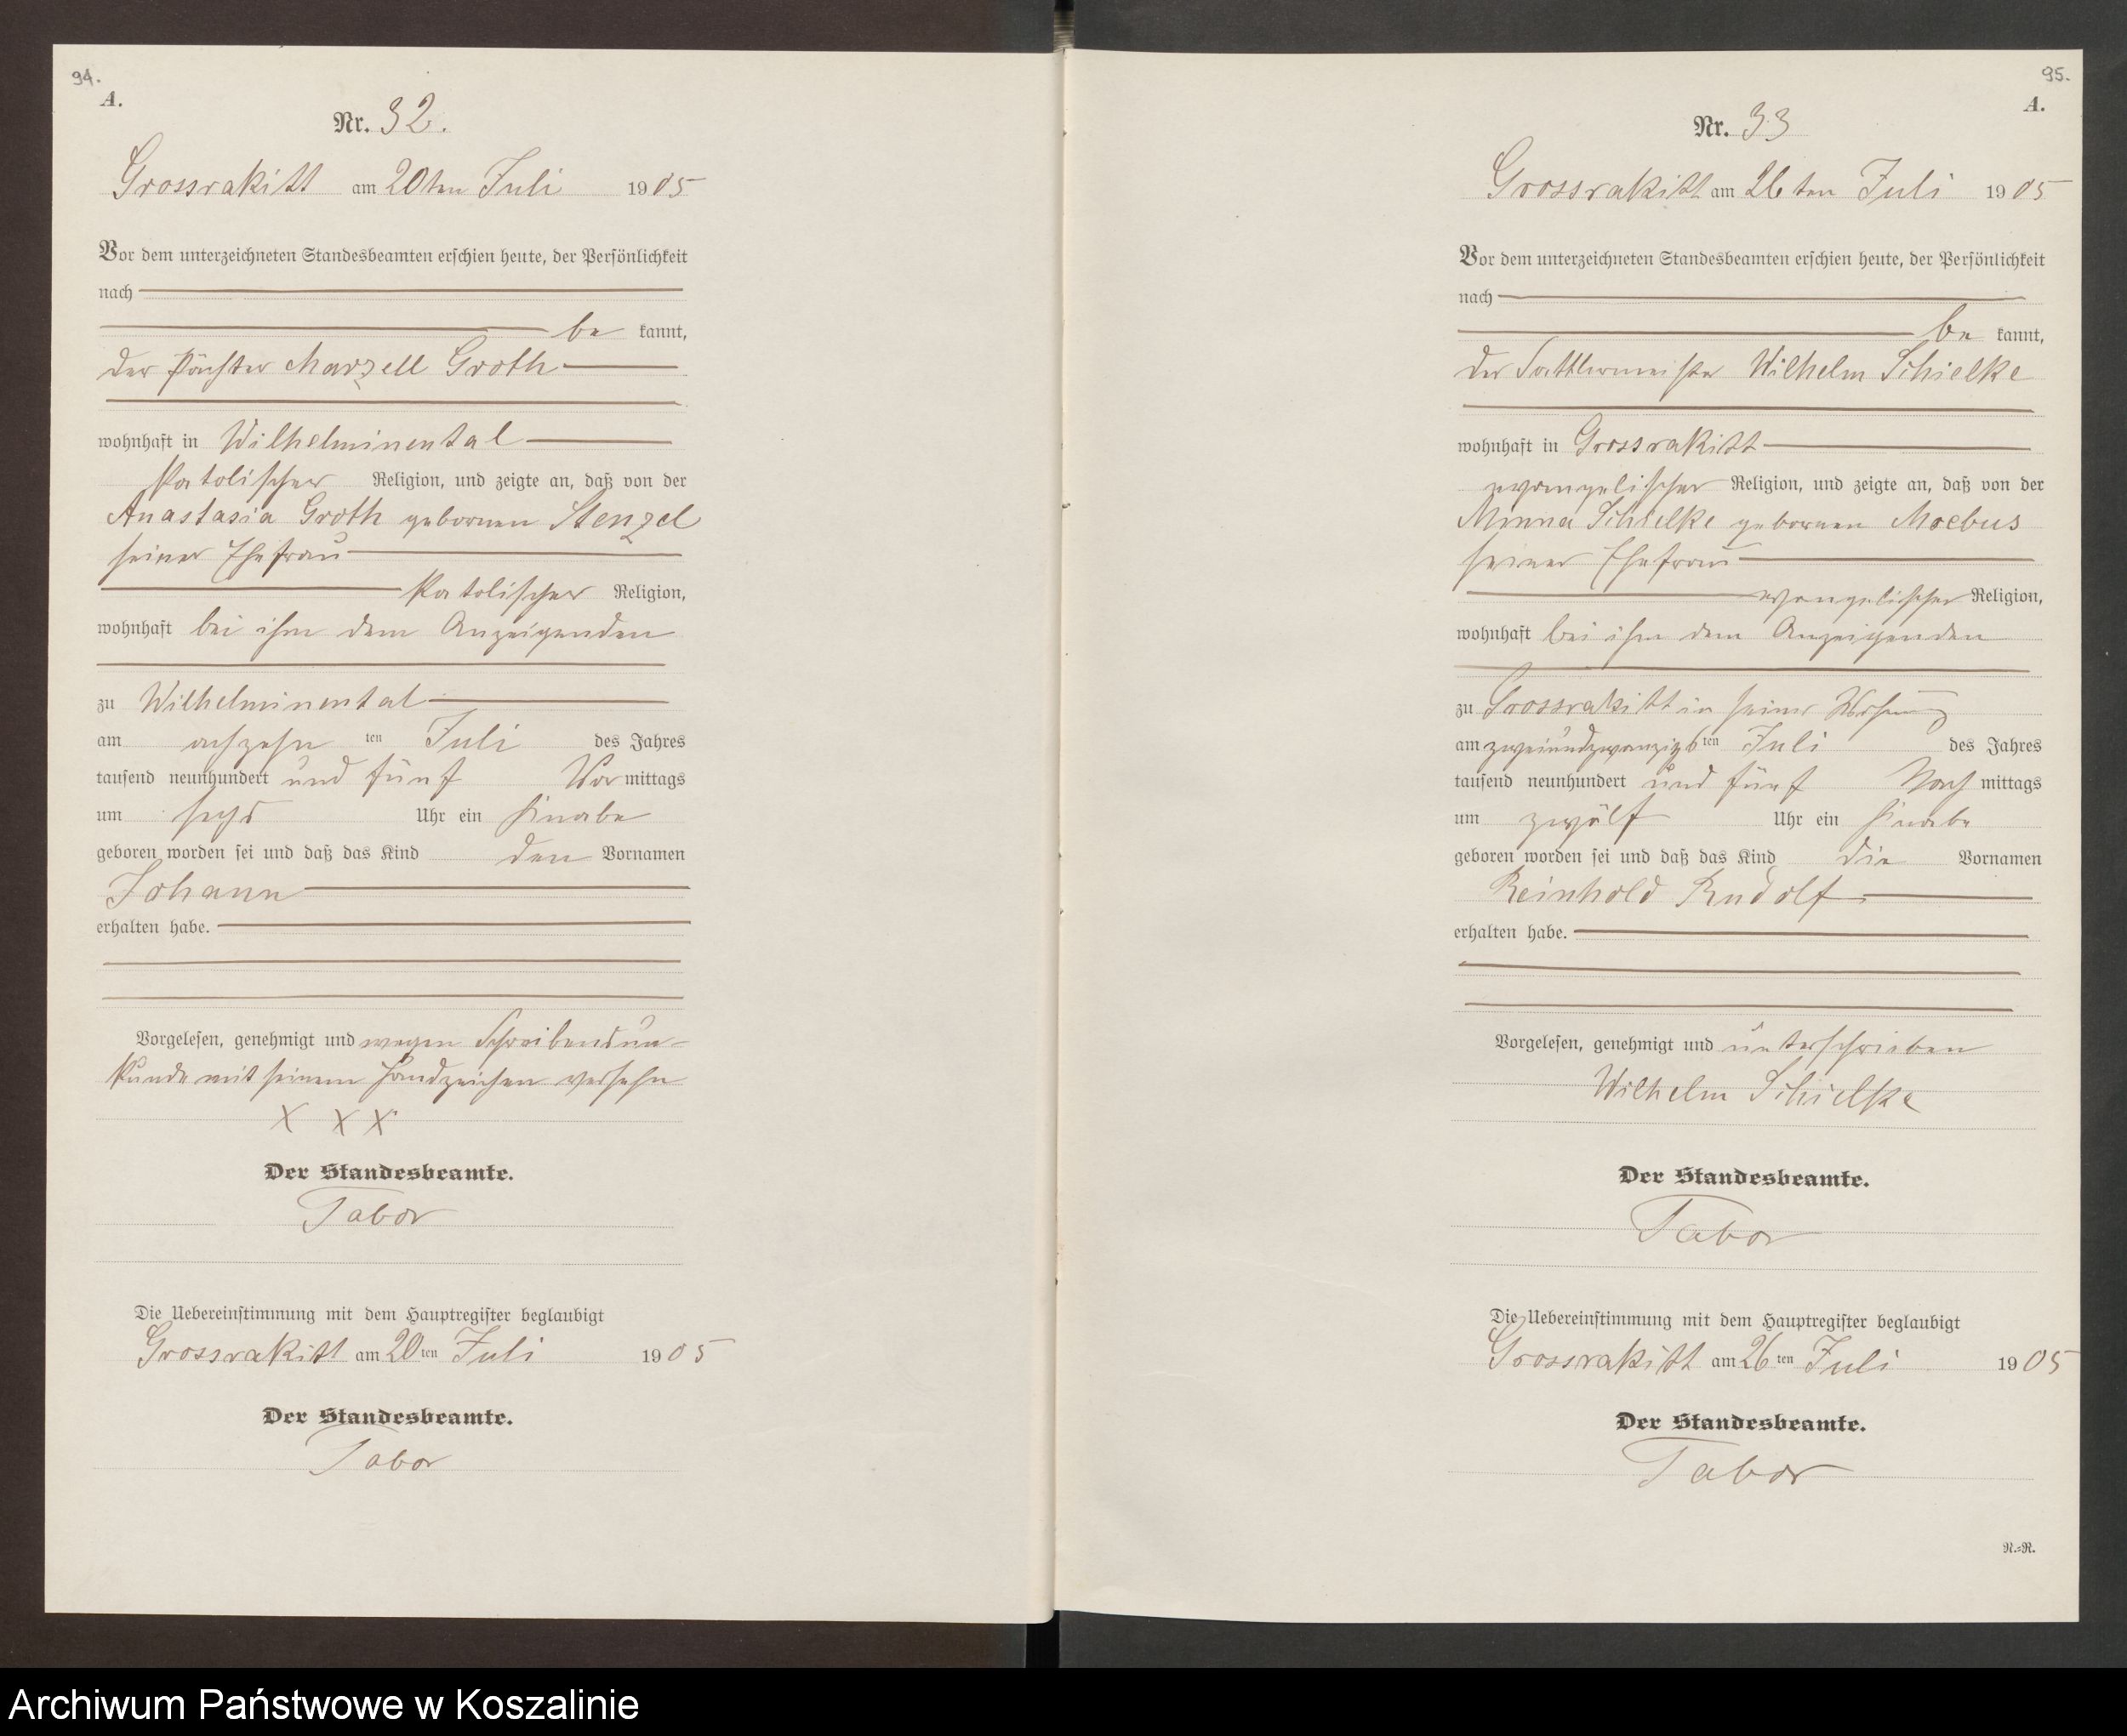 94.
A.
Nr. 32.
Grossrakitt am 20ten Juli 1905
Vor dem unterzeichneten Standesbeamten erschien heute, der Persönlichkeit
nach
be kannt,
der Pächter Marzell Groth
wohnhaft in Wilhelminental
katolischer Religion, und zeigte an, daß von der
Anastasia Groth gebornen Stenzel
seiner Ehefrau
katolischer Religion,
wohnhaft bei ihm dem Anzeigenden
zu Wilhelminental
am achzehn ten Juli des Jahres
tausend neunhundert und fünf Vor mittags
um sechs Uhr ein Knabe
geboren worden sei und daß das Kind den Vornamen
Johann
erhalten habe.
Vorgelesen, genehmigt und wegen Schreibensun-
kunde mit seinem Handzeichen versehn
X X X
Der Standesbeamte.
Tabor
Die Uebereinstimmung mit dem Hauptregister beglaubigt
Grossrakitt am 20ten Juli 1905
Der Standesbeamte.
Tabor
95.
A.
Nr. 33
Grossrakitt am 26ten Juli 1905
Vor dem unterzeichneten Standesbeamten erschien heute, der Persönlichkeit
nach
be kannt,
der Sattlermeister Wilhelm Schielke
wohnhaft in Grossrakitt
evangelischer Religion, und zeigte an, daß von der
Minna Schielke gebornen Moebus
seiner Ehefrau
evangelischer Religion,
wohnhaft bei ihm dem Anzeigenden
zu Grossrakitt in seiner Wohnung
am zweiundzwanzigs ten Juli des Jahres
tausend neunhundert und fünf Nach mittags
um zwölf Uhr ein Knabe
geboren worden sei und daß das Kind die Vornamen
Reinhold Rudolf
erhalten habe.
Vorgelesen, genehmigt und unterschrieben
Wilhelm Schielke
Der Standesbeamte.
Tabor
Die Uebereinstimmung mit dem Hauptregister beglaubigt
Grossrakitt am 26ten Juli 1905
Der Standesbeamte.
Tabor
R.=R.
Archiwum Państwowe w Koszalinie